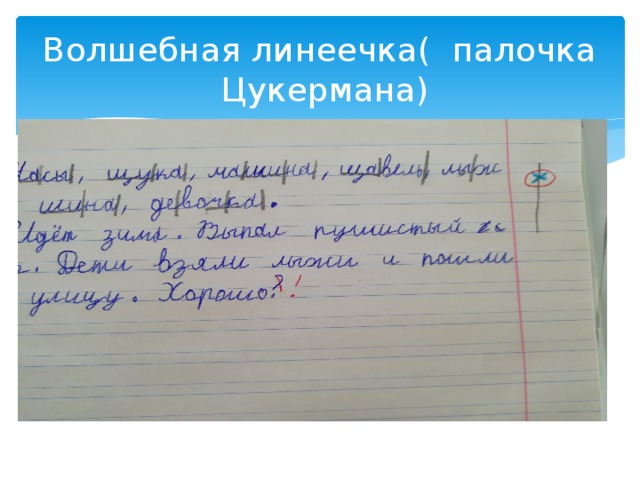 Волшебная линеечка( палочка
Цукермана)
Часы, щука, машина, щавель, лыжи
шина, девочка.
Идёт зима. Выпал пушистый
Дети взяли лыжи и пошли
улицу. Хорошо!